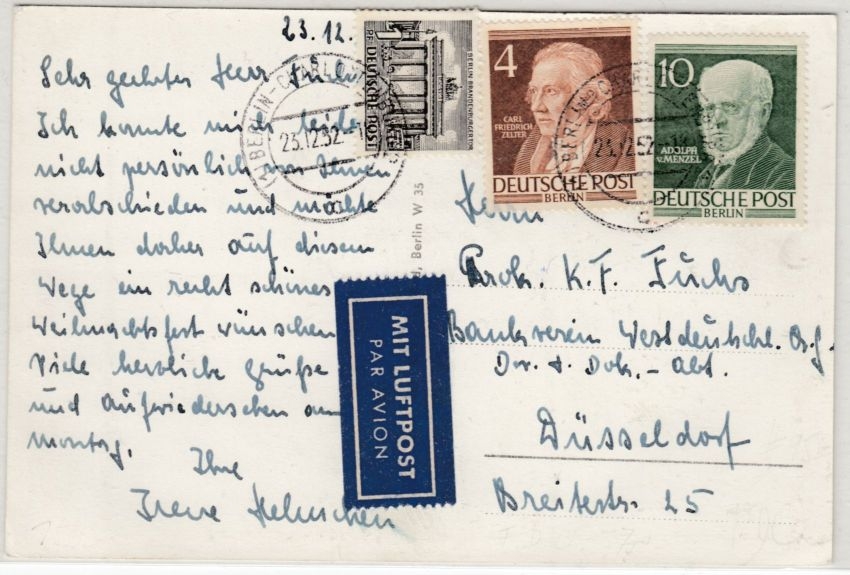 23.12.
Sehr geehrter Herr
Ich konnte mich leider
nicht persönlich von Ihnen
verabschieden und möchte
Ihnen daher auf diesem
Wege ein recht schönes
Weihnachtsfest wünschen
Viele herzliche Grüße
und Aufwiedersehen am
Montag.
Ihre
Irene
1
PF
DEUTSCHE POST
BERLIN BRANDENBURGER TOR
4
CARL
FRIEDRICH
ZELTER
DEUTSCHE POST
BERLIN
10
ADOLPH
v. MENZEL
DEUTSCHE POST
BERLIN
BERLIN-CHARLOTTENBURG
23.12.52
BERLIN
23.12.52
Berlin W 35
MIT LUFTPOST
PAR AVION
Herrn
Prok. K.F. Fuchs
Bankverein Westdeutschl. A.g.
Dev. & Dok. - Abt.
Düsseldorf
Breitestr. 25